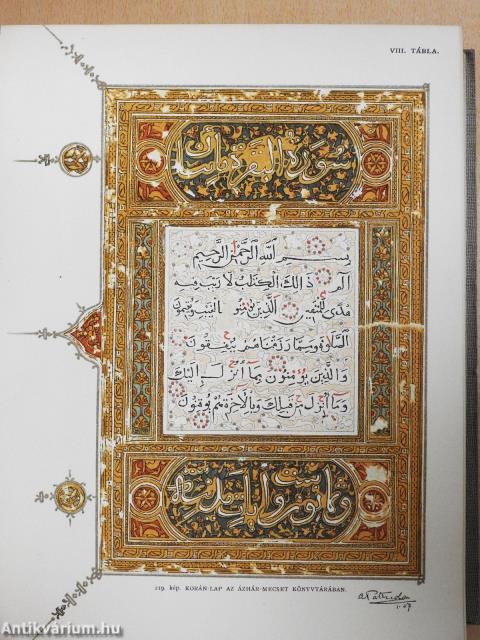 VIII. TÁBLA.
سورة البقرة مائتان
بسم الله الرحمن الرحيم
الم ذالك الكتاب لا ريب فيه
هدى للمتقين الذين يؤمنون بالغيب ويقيمون
الصلوة ومما رزقناهم ينفقون
والذين يؤمنون بما أنزل إليك
وما أنزل من قبلك وبالاخرة هم يوقنون
وثمانون وست آيات مدنية
219. kép. KORÁN-LAP AZ ÁZHÁR-MECSET KÖNYVTÁRÁBAN.
Antikvarium.hu